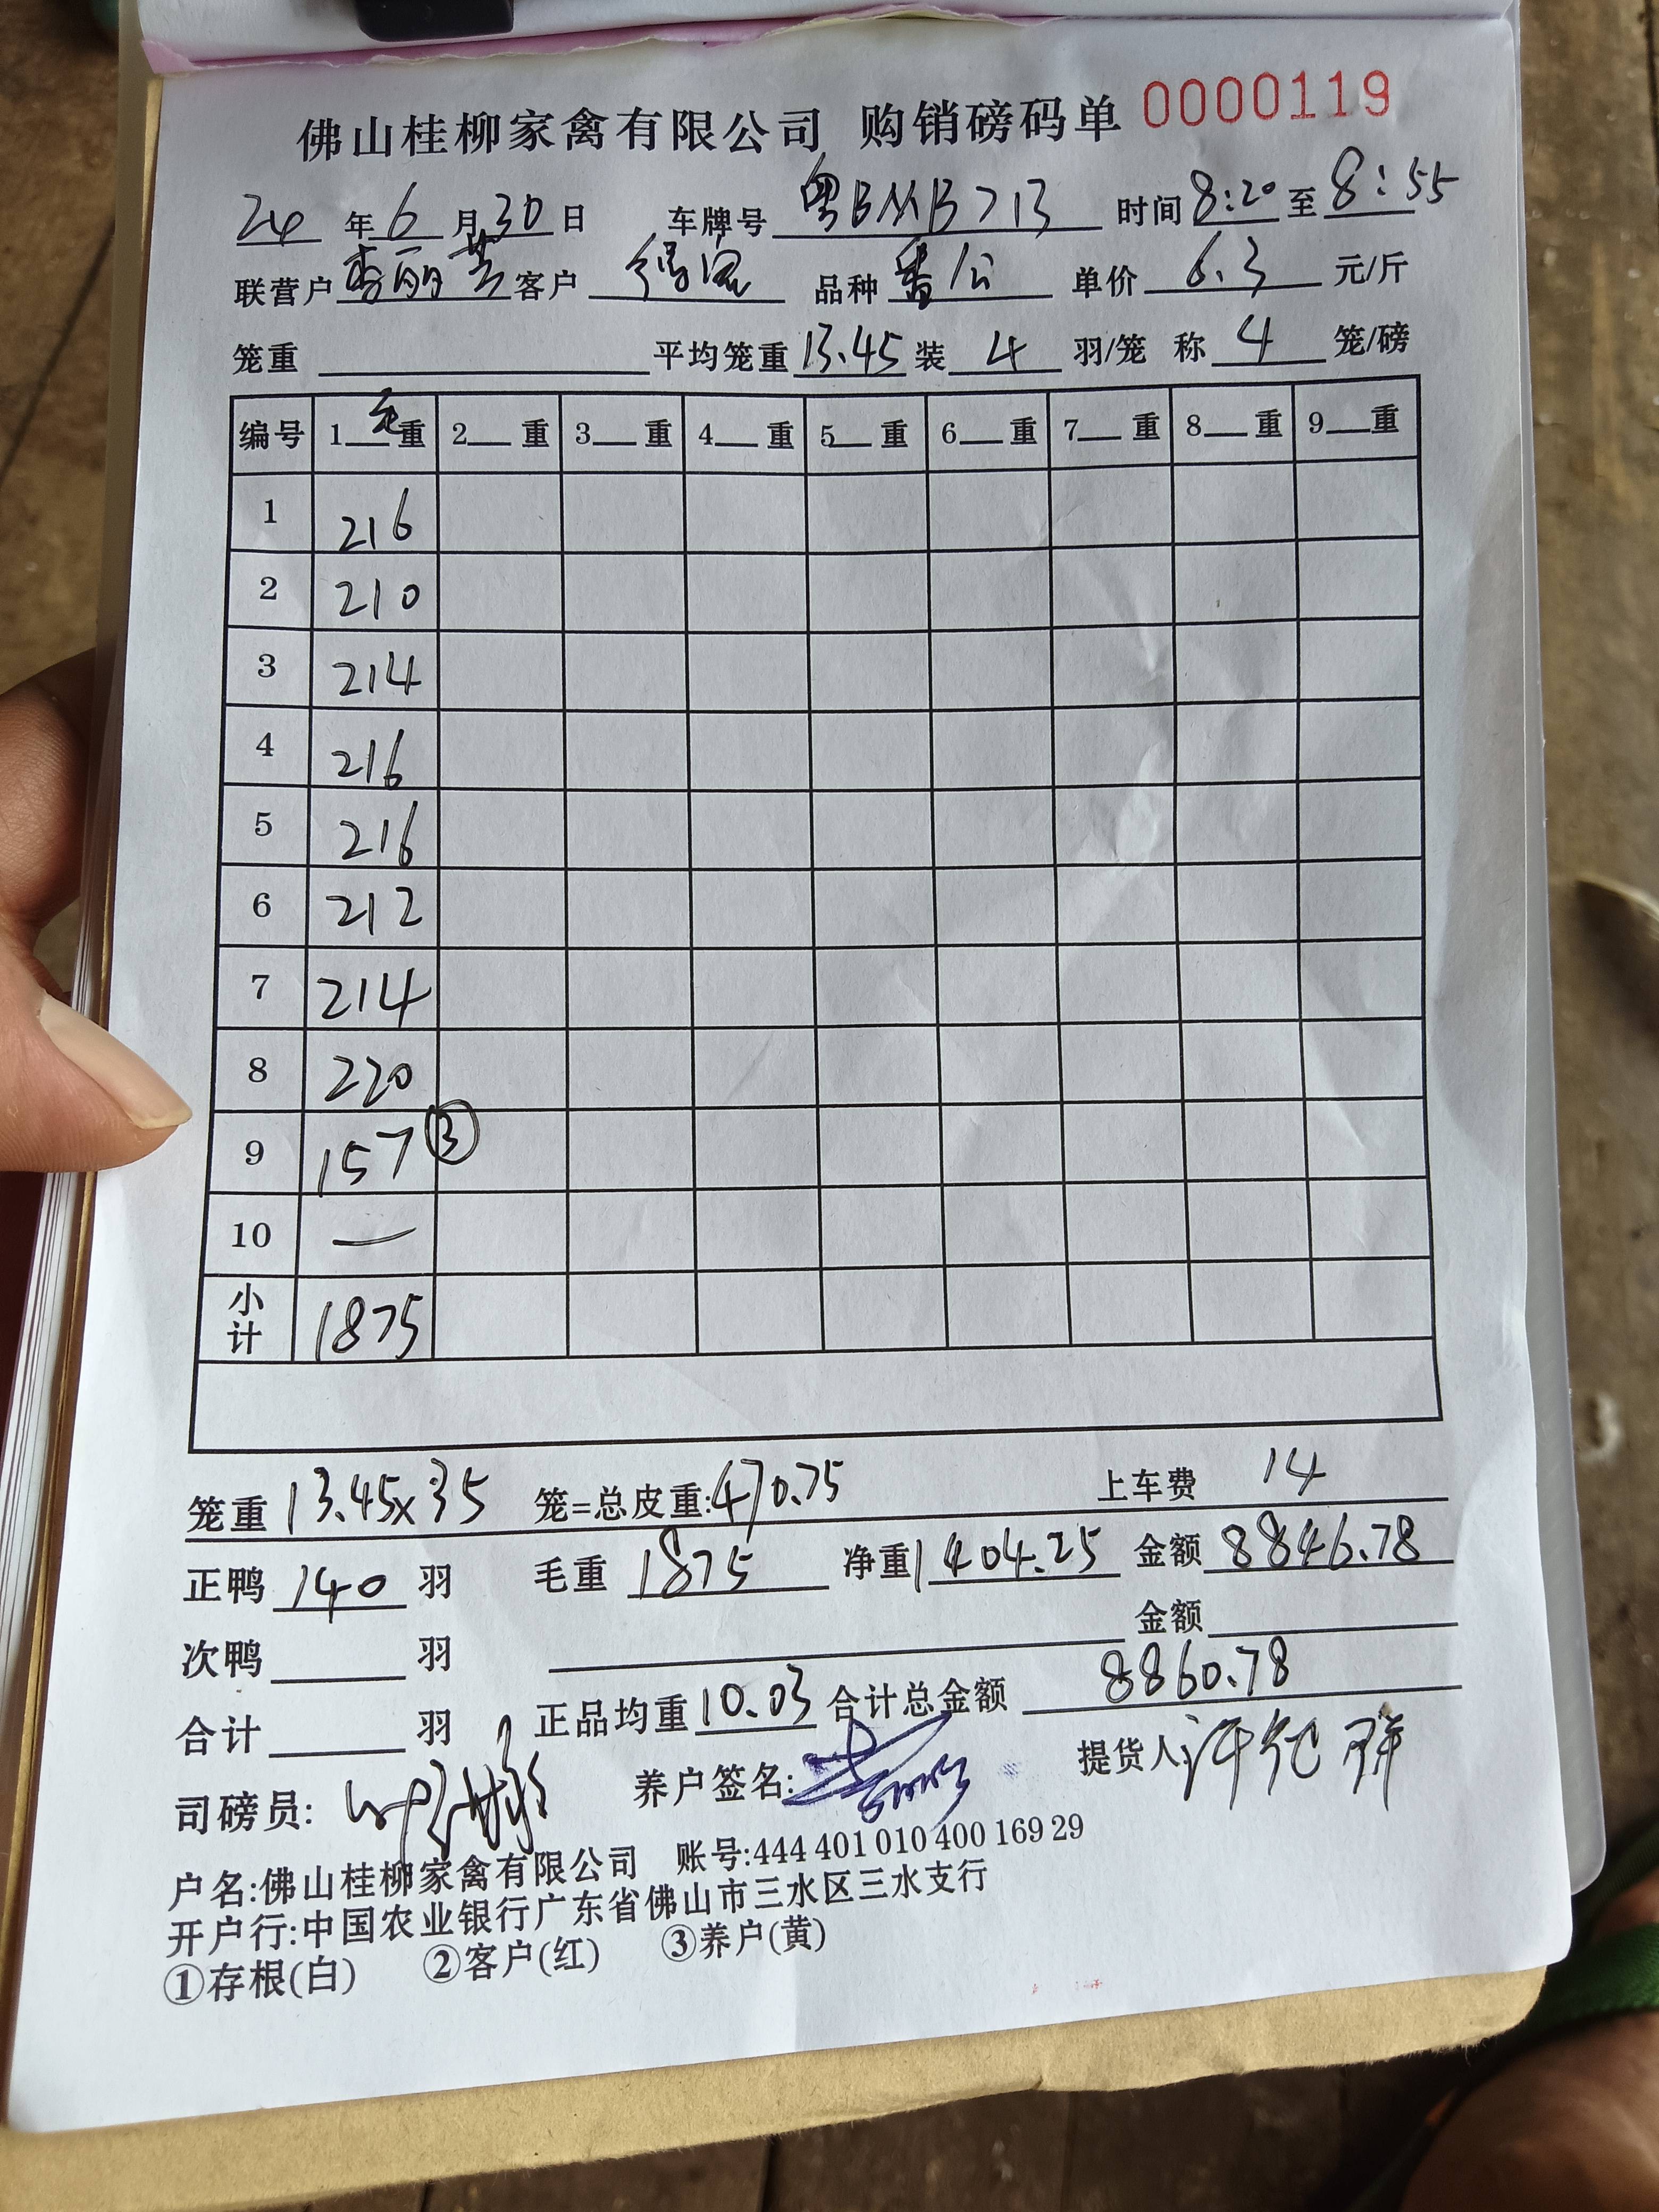 佛山桂柳家禽有限公司 购销磅码单 0000119
24 年 6 月 30 日 车牌号 粤BMB713 时间 8:20 至 8:55
联营户 李丽芸 客户 品种 番公 单价 6.3 元/斤
笼重 平均笼重 13.45 装 4 羽/笼 称 4 笼/磅
编号 1 毛 重 2 重 3 重 4 重 5 重 6 重 7 重 8 重 9 重
1 216
2 210
3 214
4 216
5 216
6 212
7 214
8 220
9 157 ③
10 —
小计 1875
笼重 13.45×35 笼=总皮重:470.75 上车费 14
正鸭 140 羽 毛重 1875 净重 1404.25 金额 8846.78
次鸭 羽 金额
合计 羽 正品均重 10.03 合计总金额 8860.78
司磅员: 养户签名: 提货人
户名:佛山桂柳家禽有限公司 账号:444 401 010 400 169 29
开户行:中国农业银行广东省佛山市三水区三水支行
①存根(白) ②客户(红) ③养户(黄)